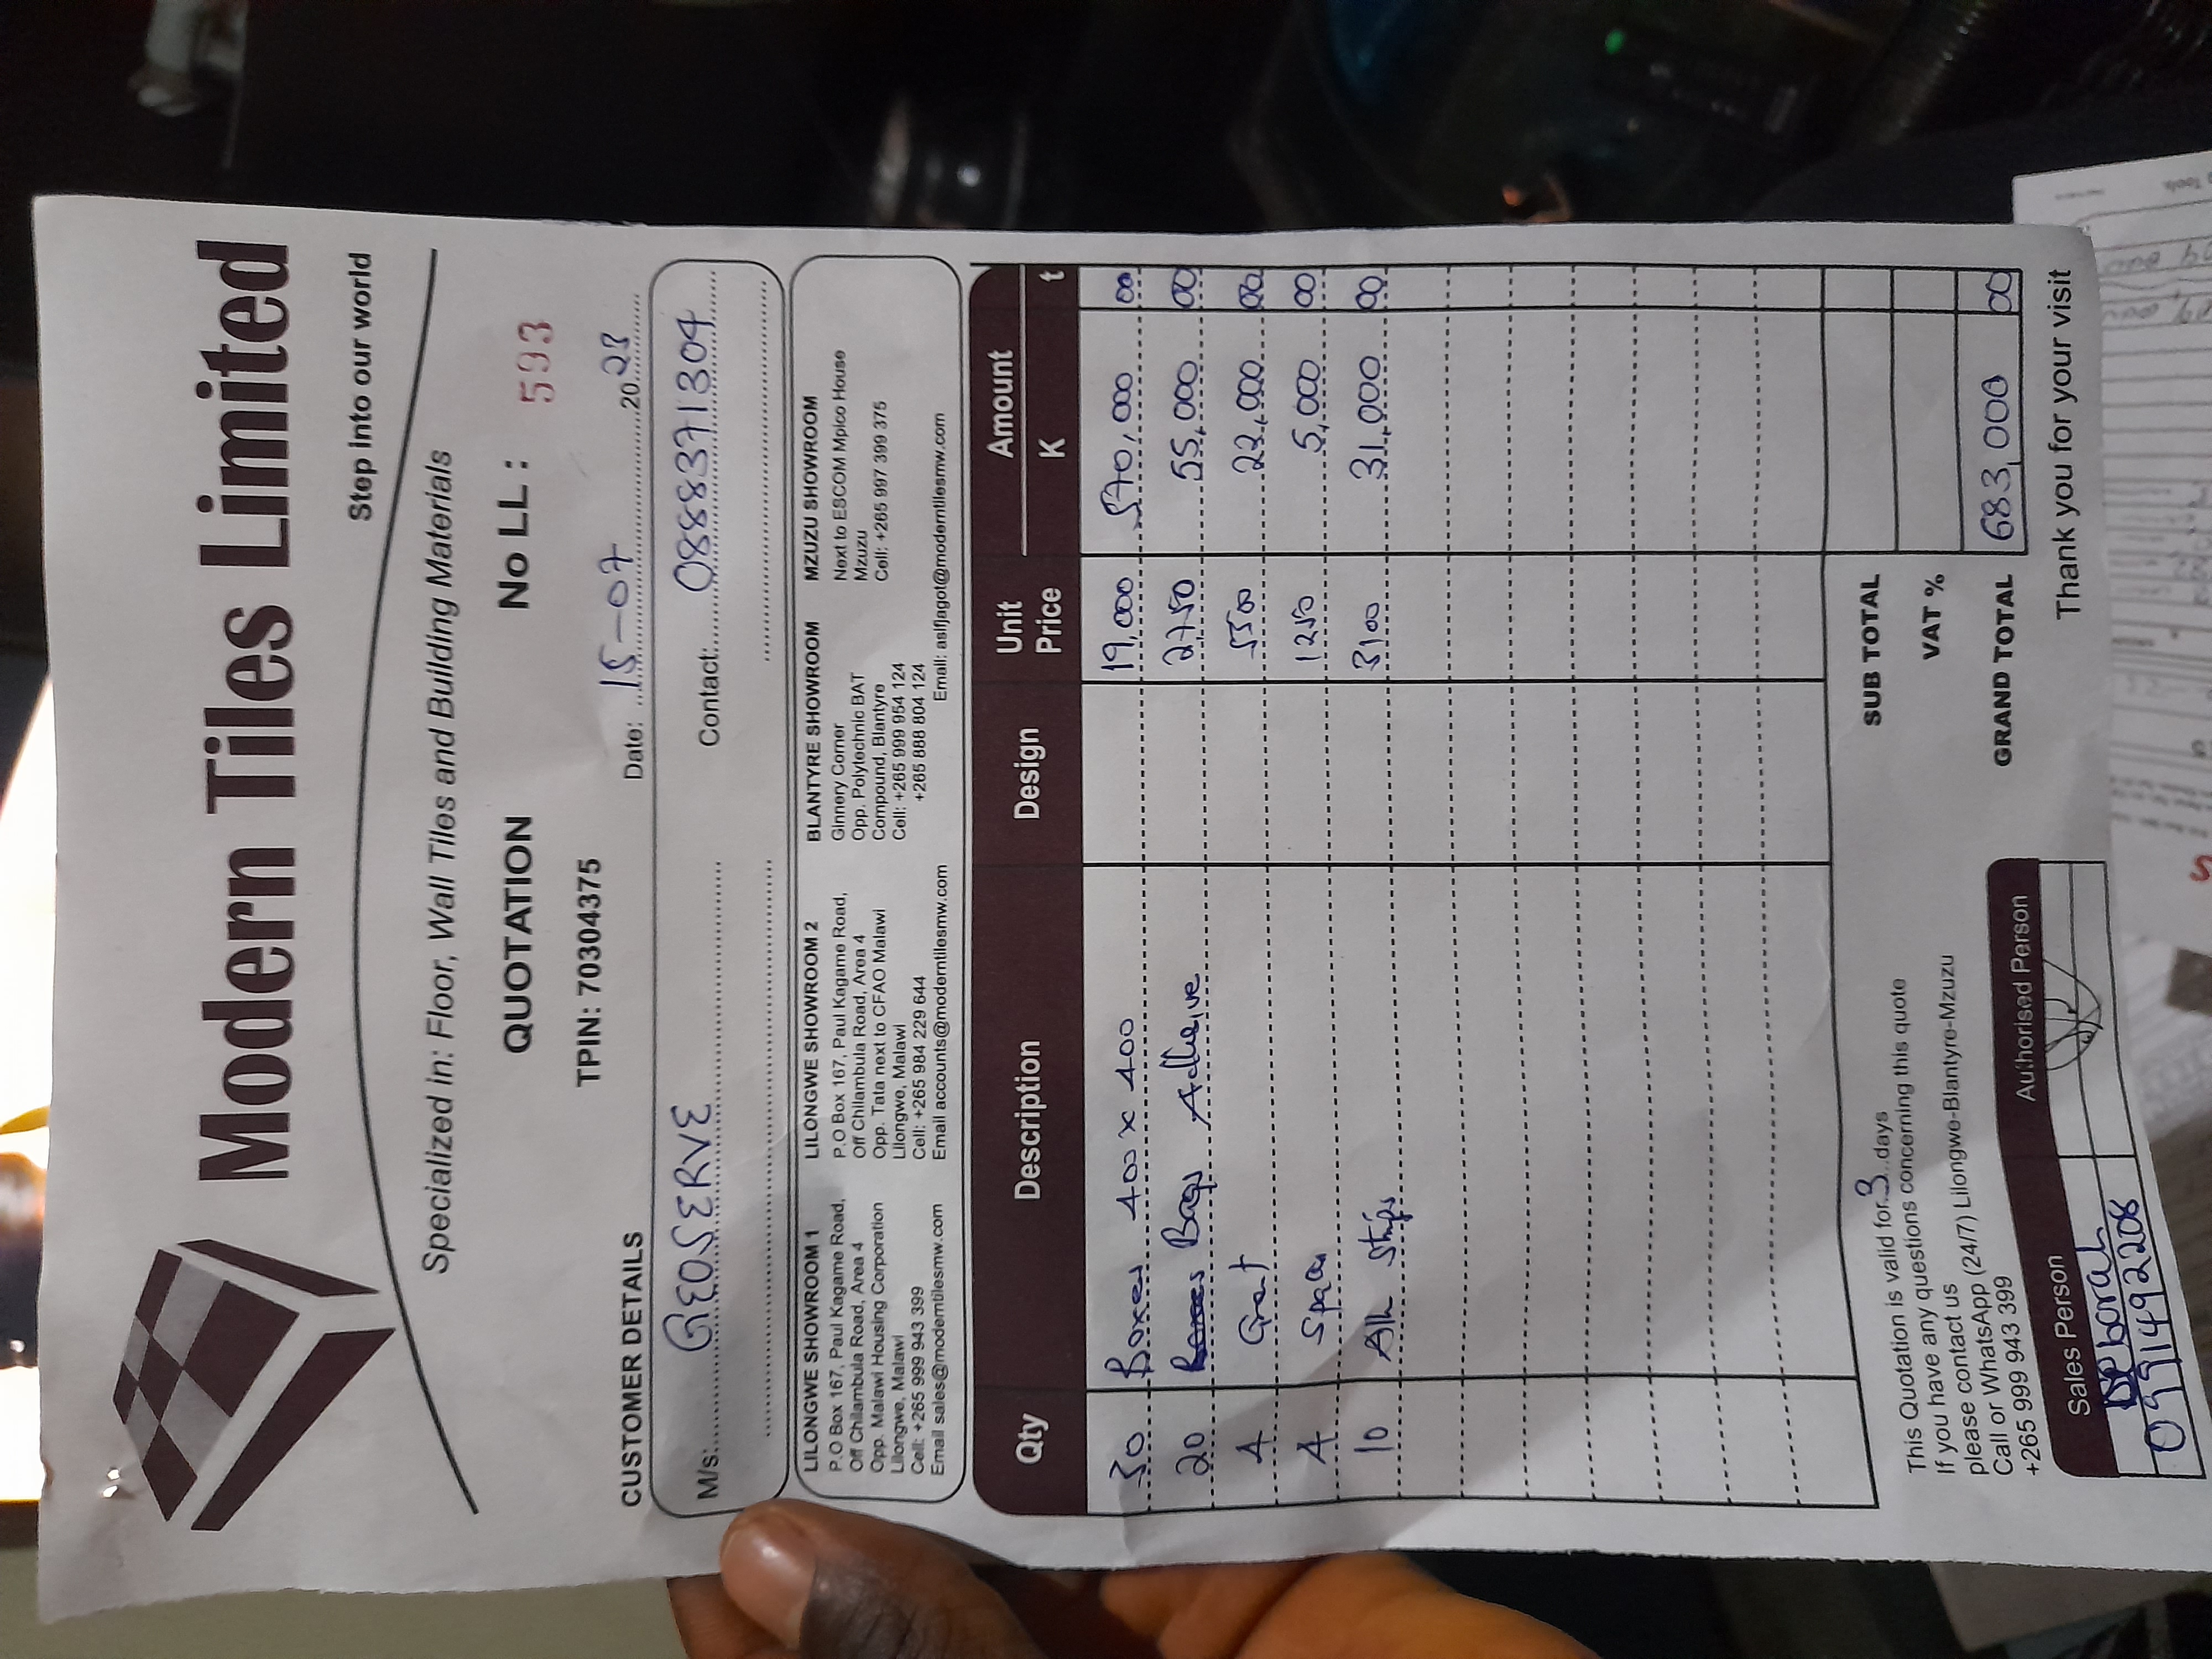 Modern Tiles Limited
Step into our world
Specialized in: Floor, Wall Tiles and Building Materials
QUOTATION No LL : 593
TPIN: 70304375
CUSTOMER DETAILS Date: 15-07 2023
M/s: GEOSERVE Contact: 0888371304
LILONGWE SHOWROOM 1
P.O Box 167, Paul Kagame Road,
Off Chilambula Road, Area 4
Opp. Malawi Housing Corporation
Lilongwe, Malawi
Cell: +265 999 943 399
Email sales@moderntilesmw.com
LILONGWE SHOWROOM 2
P.O Box 167, Paul Kagame Road,
Off Chilambula Road, Area 4
Opp. Tata next to CFAO Malawi
Lilongwe, Malawi
Cell: +265 984 229 644
Email accounts@moderntilesmw.com
BLANTYRE SHOWROOM
Ginnery Corner
Opp. Polytechnic BAT
Compound, Blantyre
Cell: +265 999 954 124
+265 888 804 124
MZUZU SHOWROOM
Next to ESCOM Mpico House
Mzuzu
Cell: +265 997 399 375
Email: asifjagot@moderntilesmw.com
Qty Description Design Unit Price Amount K t
30 Boxes 400 x 400 19,000 570,000 00
20 Boxes Bags Adhesive 2750 55,000 00
4 Grout 5500 22,000 00
4 1250 5,000 00
10 Strips 3100 31,000 00
SUB TOTAL
VAT %
GRAND TOTAL 683,000 00
This Quotation is valid for 3 days
If you have any questions concerning this quote
please contact us
Call or WhatsApp (24/7) Lilongwe-Blantyre-Mzuzu
+265 999 943 399
Sales Person Authorised Person
Deborah
0991492208
Thank you for your visit